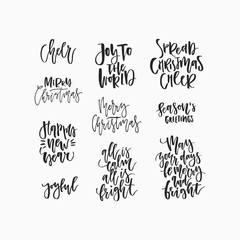 Cheer
Merry
Christmas
Happy
new
year
joyful
Joy to
the
world
Merry
Christmas
all is
calm
all is
bright
Spread
Christmas
cheer
Season's
greetings
May
your days
be merry
and
bright